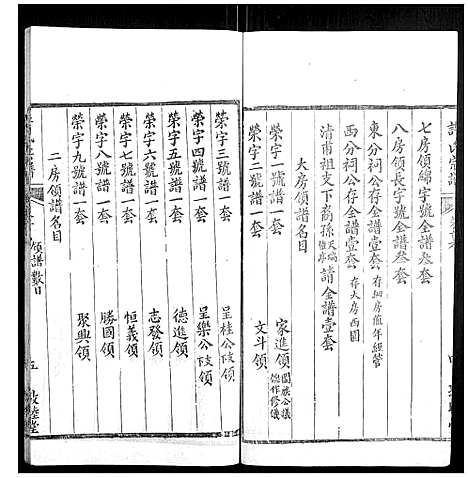 七房領綿字號全譜叁套
八房領長字號全譜叁套
東分祠公存全譜壹套 存細房值年經管
西分祠公存全譜壹套 存大房西圓
清甫祖支下裔孫 請全譜壹套
大房領譜名目
榮字一號譜一套 家進領 闔族公議
榮字二號譜一套 文斗領
榮字三號譜一套 呈桂公支領
榮字四號譜一套 呈樂公支領
榮字五號譜一套 德進領
榮字六號譜一套 志發領
榮字七號譜一套 恒義領
榮字八號譜一套 勝國領
榮字九號譜一套 聚興領
二房領譜名目
領譜數目 五 敦睦堂